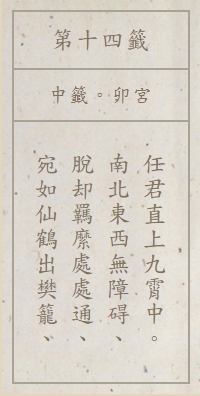 第十四籤
中籤。卯宮
宛如仙鶴出樊籠、
脫却羈縻處處通、
南北東西無障碍、
任君直上九霄中。